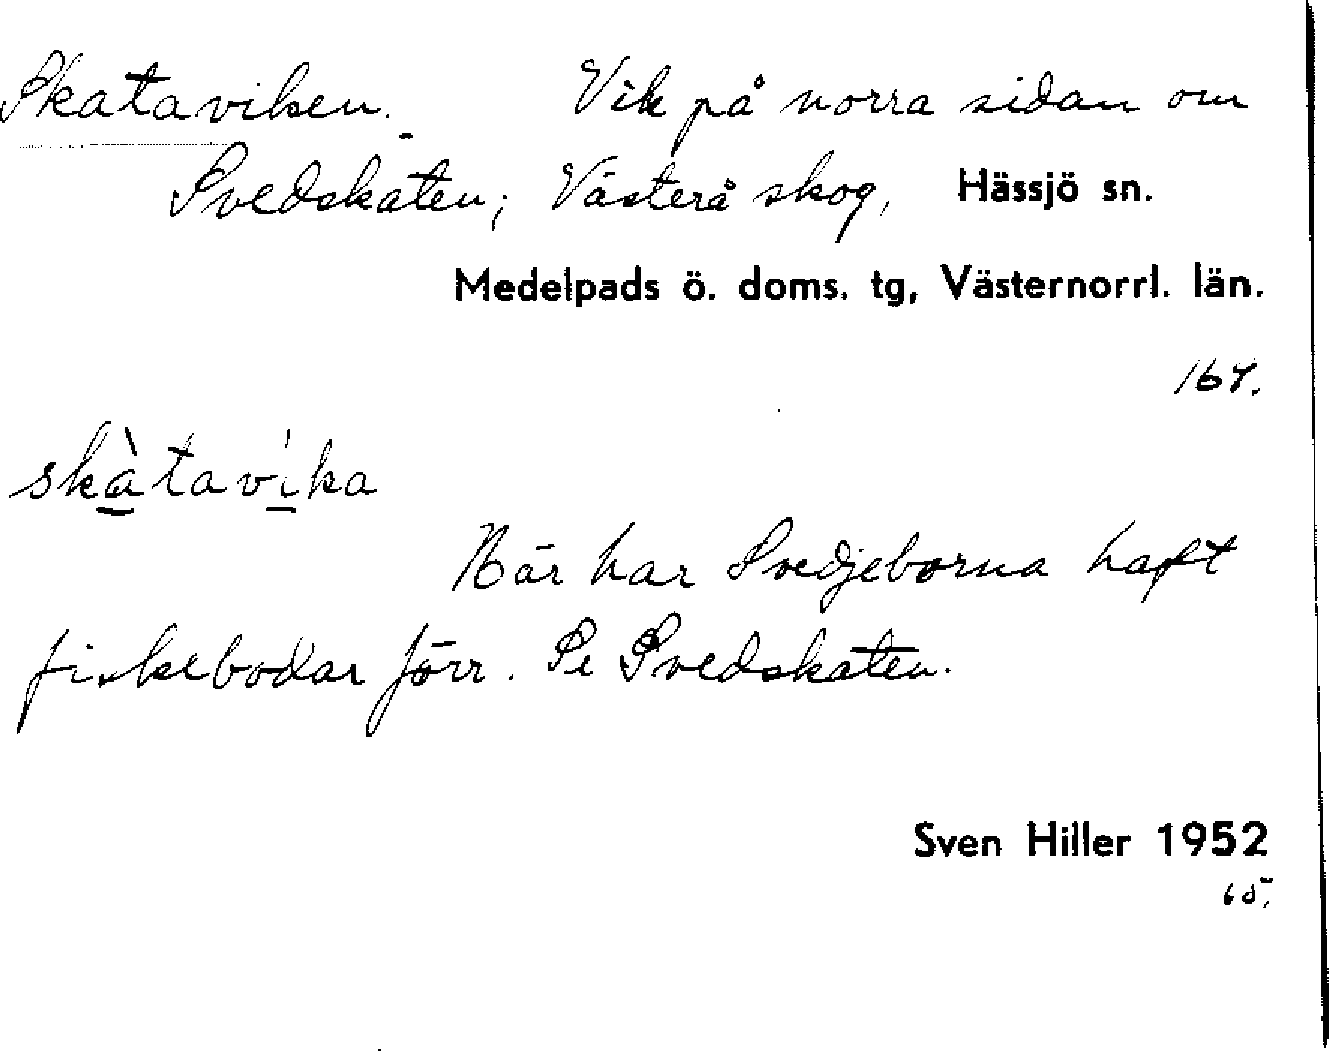 Skataviken. Vik på norra sidan om
Svedskaten; Västerå skog, Hässjö sn.
Medelpads ö. doms. tg, Västernorrl. län.
167.
skàtavika
Här har Svedjeborna haft
fiskebodar förr. Se Svedskaten.
Sven Hiller 1952